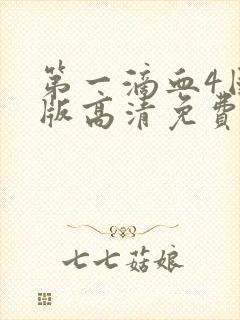 第一滴血4国
版高清免费
七七菇娘